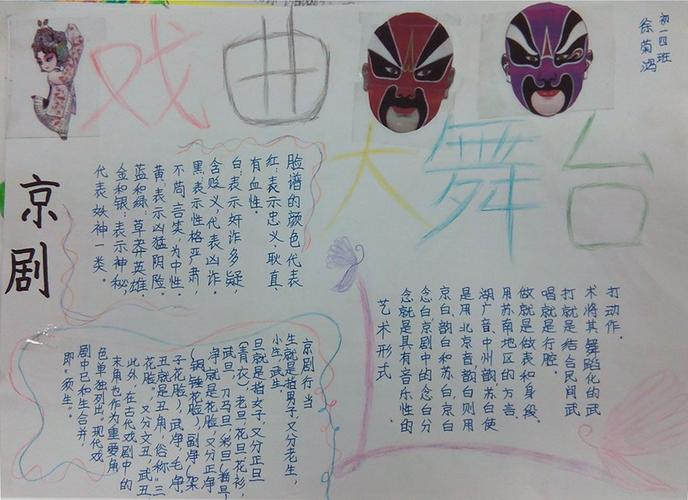 戏曲
大舞台
初一四班
京剧
脸谱的颜色代表
红:表示忠义,耿直,
有血性。
白:表示奸诈多疑,
含贬义,代表凶诈。
黑:表示性格严肃,
不苟言笑,为中性。
黄:表示凶猛阴险。
蓝和绿:草莽英雄。
金和银:表示神秘,
代表妖神一类。
京剧行当
生就是指男子,又分老生,
小生,武生
旦就是指女子,又分正旦
(青衣),老旦,花旦,花衫,
武旦,刀马旦,彩旦
净就是花脸,又分正净
(铜锤花脸),副净(架
子花脸),武净,毛净。
丑就是丑角,俗称"三
花脸",又分文丑,武丑
此外,在古代戏剧中的
末角也作为重要角
色单独列出,现代戏
剧中已和生合并,
即"须生"。
艺术形式
念就是具有音乐性的
念白,京剧中的念白分
京白,韵白和苏白,京白
是用北京音,韵白则用
湖广音、中州韵,苏白使
用苏南地区的方言。
做就是做表和身段。
唱就是行腔。
打就是结合民间武
术将其舞蹈化的武
打动作。